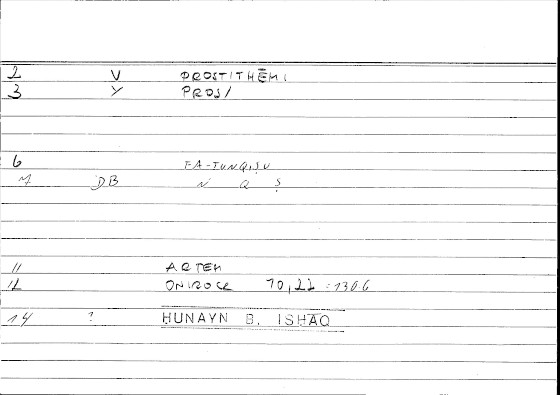 2 V PROSTITHĒMI
3 Y PROS/
6 FA-TUNQIṢU
DB N Q Ṣ
11 ARTEM
12 ONIROCR 70,22 : 130.6
14 ? HUNAYN B. ISHAQ